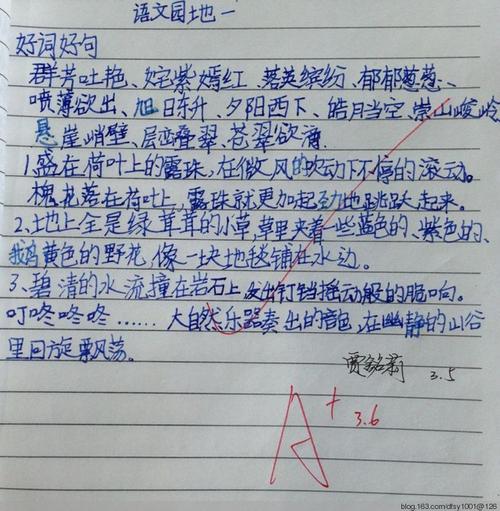 语文园地一
好词好句
群芳吐艳、姹紫嫣红、落英缤纷、郁郁葱葱、
喷薄欲出、旭日东升、夕阳西下、皓月当空、崇山峻岭、
悬崖峭壁、层峦叠翠、苍翠欲滴
1.盛在荷叶上的露珠,在微风的吹动下不停的滚动。
槐花落在荷叶上,露珠就更加起劲地跳跃起来。
2.土地上全是绿茸茸的小草,草里夹着一些蓝色的、紫色的、
黄色的野花,像一块地毯铺在水边。
3.碧清的水流撞在岩石上,发出钉铛摇动般的脆响。
叮咚咚咚……大自然乐器奏出的音色,在幽静的山谷
里回旋飘荡。
3.5
A+ 3.6
blog.163.com/dfsy1001@126